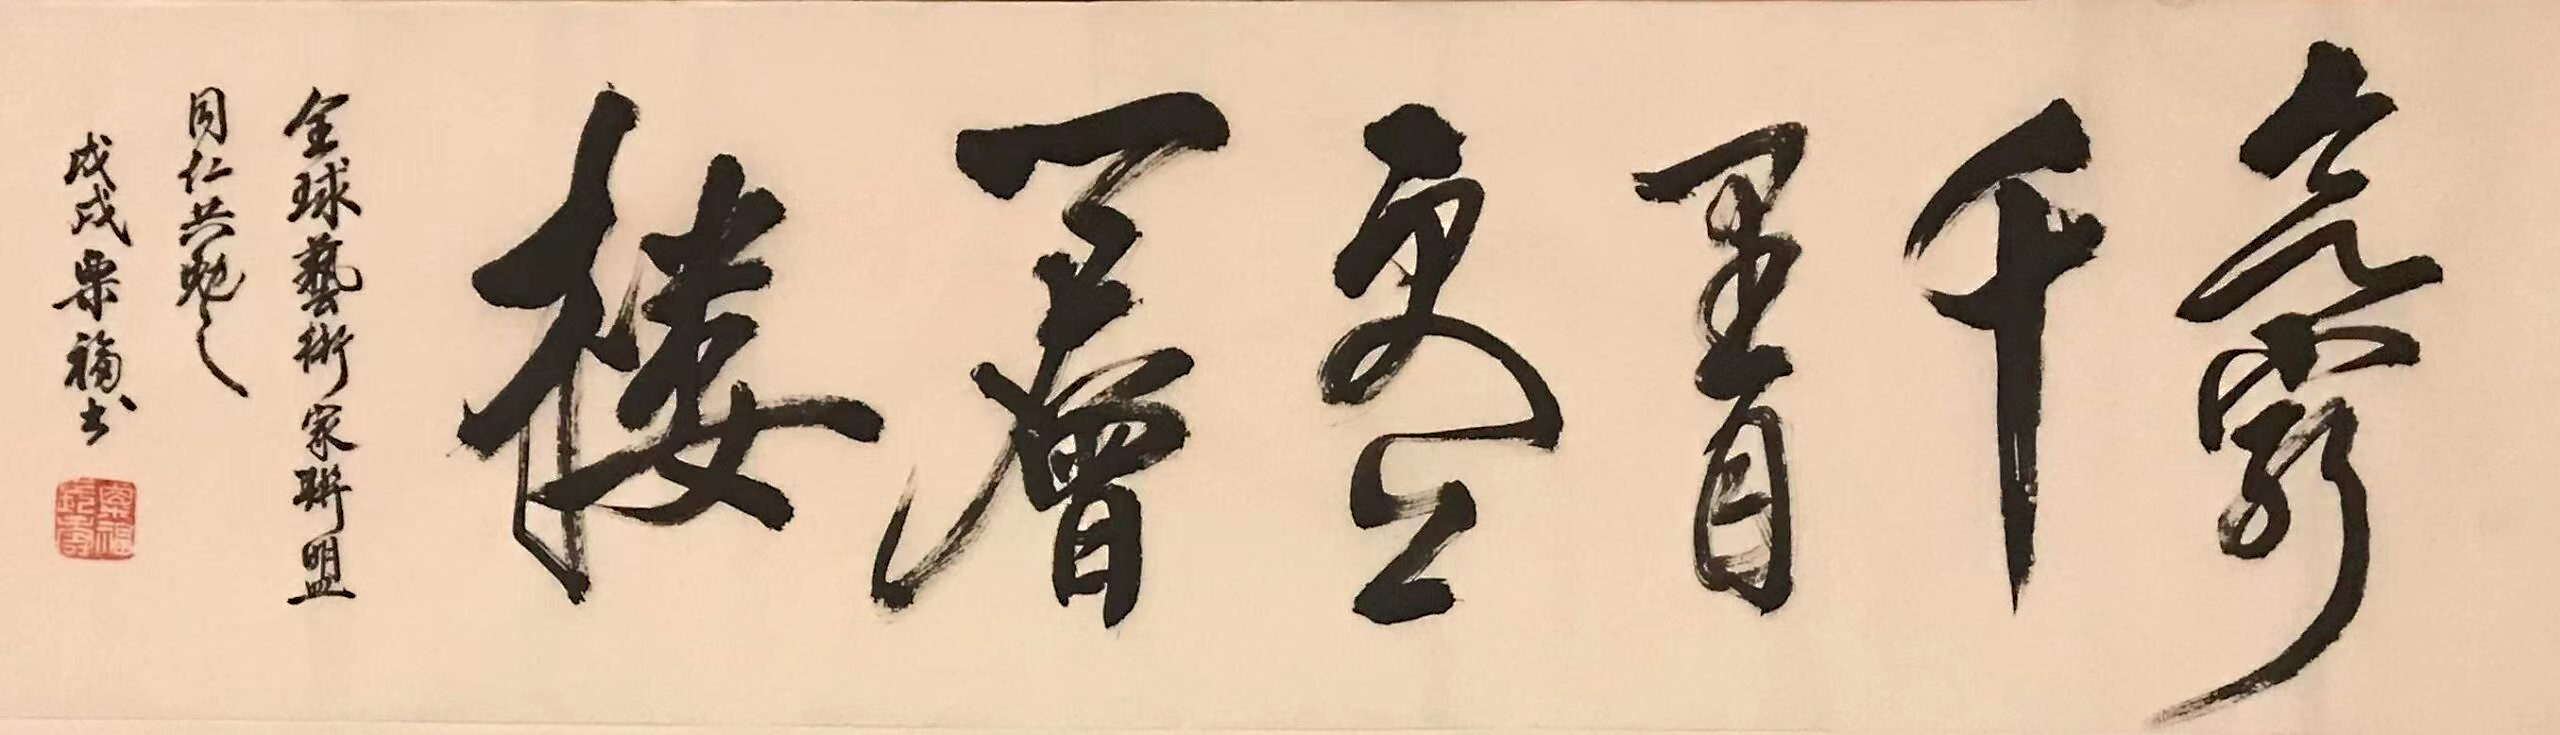 欲窮
千
里目
更上
一層
楼
全球藝術家聯盟
同仁共勉之
戊戌栗福书